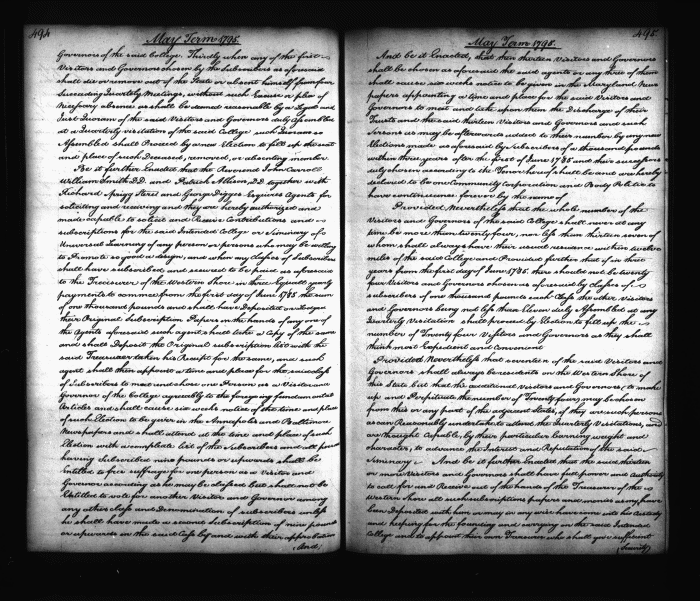 494
May Term 1795.
Governors of the said College. Thirdly when any of the first
Visitors and Governors chosen by the Subscribers as aforesaid
shall die or remove out of the State or absent himself from four
Succeeding Quarterly Meetings, without such Excuse or plea of
Necessary absence as shall be deemed reasonable by a Legal and
Just Quorum of the said Visitors and Governors duly Assembled
at a Quarterly visitation of the said College such Quorum so
Assembled shall Proceed by a new Election to fill up the seat
and place of such Deceased, removed, or absenting member.
Be it further Enacted that the Reverend John Carroll
William Smith D.D. and Patrick Allison, D.D. together with
Richard Sprigg Steret and George Digges Esquires Agents for
soliciting and receiving and they are hereby authorized and
made capable to solicit and Receive Contributions and
subscriptions for the said Intended College or Seminary of
Universal Learning of any person or persons who may be willing
to Promote so good a design, and when any Classes of Subscribers
shall have subscribed and secured to be paid as aforesaid
to the Treasurer of the Western Shore in three Equall yearly
payments to commence from the first day of June 1785 the sum
of one thousand pounds and shall have Deposited or Lodged
their Original Subscription Papers in the hands of any one of
the Agents aforesaid such agent shall take a Copy of the same
and shall Deposit the Original subscription list with the
said Treasurer taken his Receipt for the same, and such
agent shall then appoint a time and place for the said Class
of Subscribers to meet and chose one Person as a Visitor and
Governor of the College agreeably to the foregoing fundamental
Articles and shall cause six weeks notice of the time and place
of such Election to be given in the Annapolis and Baltimore
Newspapers and shall attend at the time and place of such
Election with a compleat list of the Subscribers and all persons
having Subscribed nine pounds or upwards shall be
Entitled to free suffrage for one person as a Visitor and
Governor according as he may be classed but shall not be
Entitled to vote for another Visitor and Governor among
any other class and Denomination of subscribers unless
he shall have made a second Subscription of nine pounds
or upwards in the said Class by and with their approbation
And,
495
May Term 1795.
And be it Enacted, that when thirteen Visitors and Governors
shall be chosen as aforesaid the said agents or any three of them
shall cause six weeks notice to be given in the Maryland News
papers appointing a time and place for the said Visitors and
Governors to meet and take upon them the Discharge of their
Trusts and the said thirteen Visitors and Governors and such
Persons as may be afterwards added to their number by any new
Elections made as aforesaid by Subscribers of a thousand pounds
within three years after the first of June 1785 and their successors
duly chosen according to the Tenor hereof shall be and are hereby
declared to be one Community Corporation and Body Politic to
have continuance forever by the name of
Provided Nevertheless that the whole number of the
Visitors and Governors of the said College shall never at any
time be more than twenty four, nor less than thirteen seven of
whom shall always have their usual residence within twelve
miles of the said College and Provided further that if in three
years from the first day of June 1785, there should not be twenty
four Visitors and Governors chosen as aforesaid by classes of
subscribers of one thousand pounds each Class the other visitors
and Governors being not less than Eleven duly Assembled at any
Quarterly Visitation shall proceed by Election to fill up the
number of Twenty four Visitors and Governors as they shall
think most Expedient and Convenient
Provided Nevertheless that seventeen of the said Visitors and
Governors shall always be residents on the Western Shore of
this State but that the additional Visitors and Governors, to make
up and Perpetuate the number of Twenty four, may be chosen
from this or any part of the adjacent States, if they are such persons
as can Reasonably undertake to attend the Quarterly Visitations, and
are thought capable, by their particular Learning weight and
character, to advance the Interest and Reputation of the said
Seminary. And be it further Enacted that the said thirteen
or more Visitors and Governors shall have full power and authority
to call for and Receive out of the hands of the Treasurer of the
Western Shore all such subscriptions papers and monies as may have
been Deposited with him or may in any wise have come into his Custody
and keeping for the founding and carrying on the said Intended
College and to appoint their own Treasurer who shall give sufficient
Security